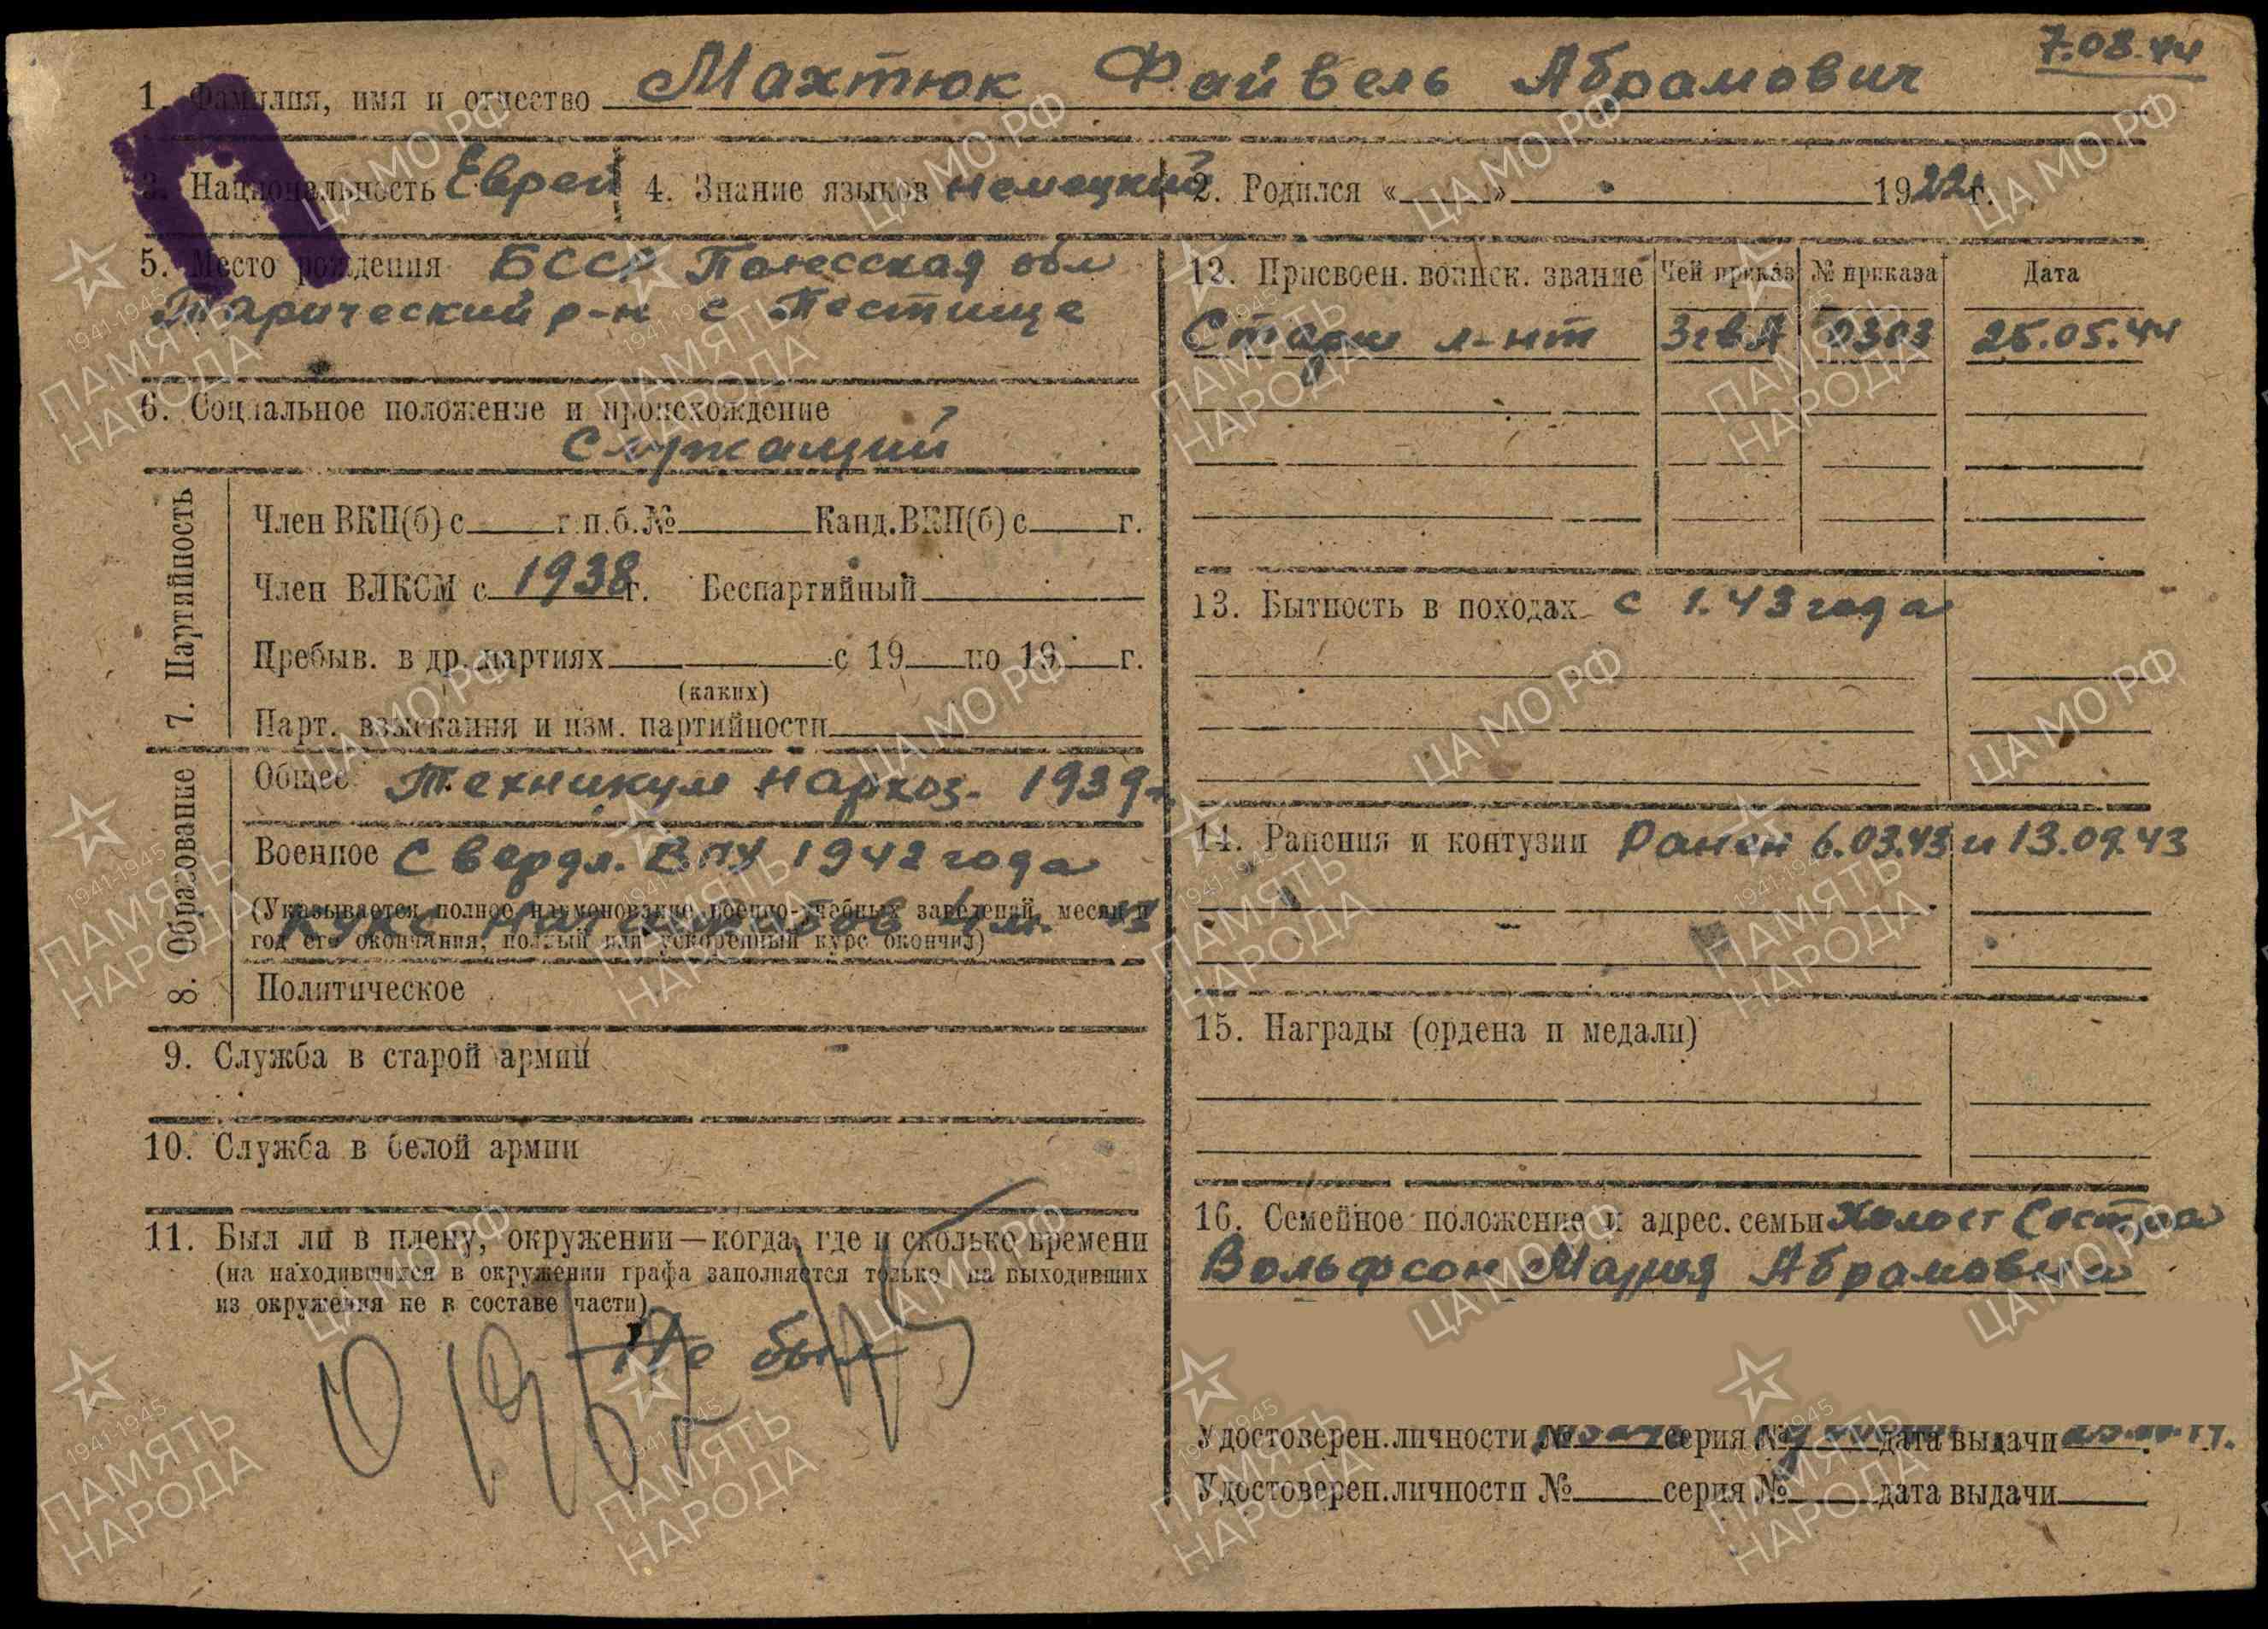 7.08.44
1. Фамилия, имя и отчество Махтюк Файвель Абрамович
3. Национальность Еврей 4. Знание языков немецкий 2. Родился « » 1922 г.
5. Место рождения БССР Полесская обл
р-н с
6. Социальное положение и происхождение
Служащий
7. Партийность
Член ВКП(б) с г. п.б. № Канд. ВКП(б) с г.
Член ВЛКСМ с 1938 г. Беспартийный
Пребыв. в др. партиях с 19 по 19 г.
(каких)
Парт. взыскания и изм. партийности
8. Образование
Общее Техникум Нархоз. 1939 г.
Военное Свердл. ВПУ 1942 года
(Указывается полное наименование военно-учебных заведений, месяц и
год его окончания, полный или ускоренный курс окончил)
Политическое
9. Служба в старой армии
10. Служба в белой армии
11. Был ли в плену, окружении—когда, где и сколько времени
(на находившихся в окружении графа заполняется только на выходивших
из окружения не в составе части)
Не был
12. Присвоен. воинск. звание Чей приказ № приказа Дата
Старш л-нт 3гвА 0303 25.05.44
13. Бытность в походах с 1.43 года
14. Ранения и контузии Ранен 6.03.43 и 13.09.43
15. Награды (ордена и медали)
16. Семейное положение и адрес. семьи Холост Сестра
Вольфсон Мария Абрамовна
Удостоверен. личности № серия № дата выдачи
Удостоверен. личности № серия № дата выдачи
ЦА МО РФ
1941-1945
ПАМЯТЬ
НАРОДА